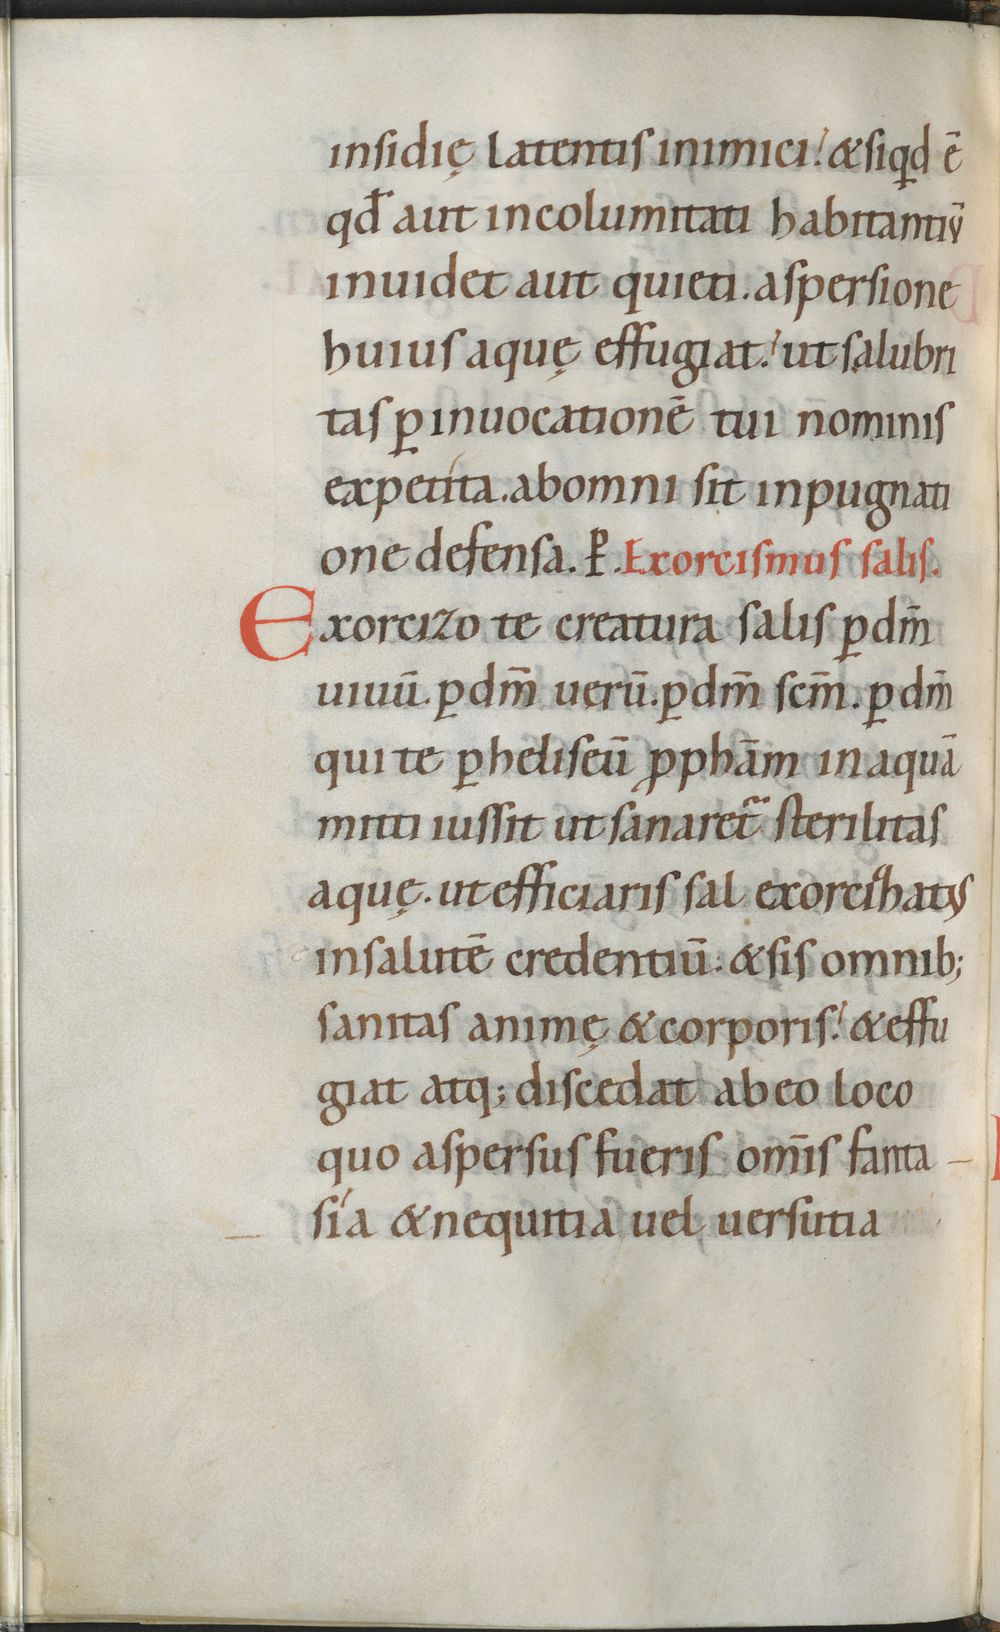 insidię latentis inimici. &siqd ē
qđ aut incolumitati habitantiū
inuidet aut quieti. aspersione
huius aquę effugiat. ut salubri
tas ꝑ inuocationē tui nominis
expetita. abomni sit inpugnati
one defensa. P̄. Exorcismus salis.
Exorcizo te creatura salis ꝑ dm̄
uiuū. ꝑ dm̄ uerū. ꝑ dm̄ scm̄. ꝑ dm̄
qui te ꝑ heliseū ꝓphām in aquā
mitti iussit ut sanaret᷑ sterilitas
aquę. ut efficiaris sal exorcizatus
insalutē credentiū. &sis omnib;
sanitas animę &corporis. &effu
giat atq; discedat ab eo loco
quo aspersus fueris om̄is fanta
sia &nequitia uel uersutia